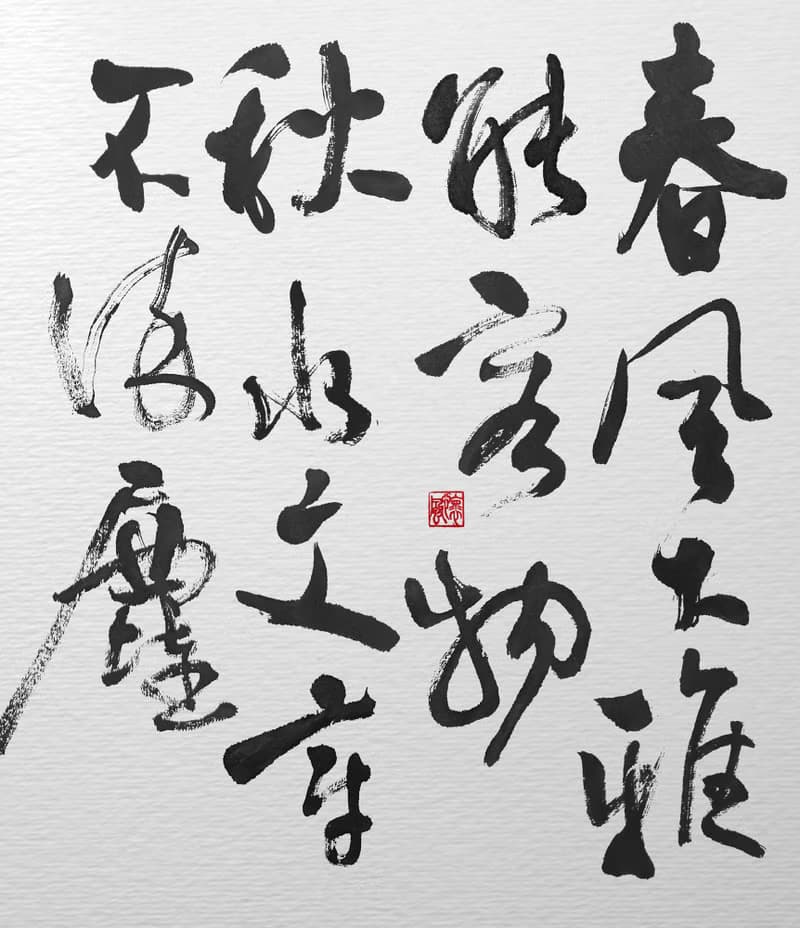 春風大雅
能容物
秋水文章
不染塵